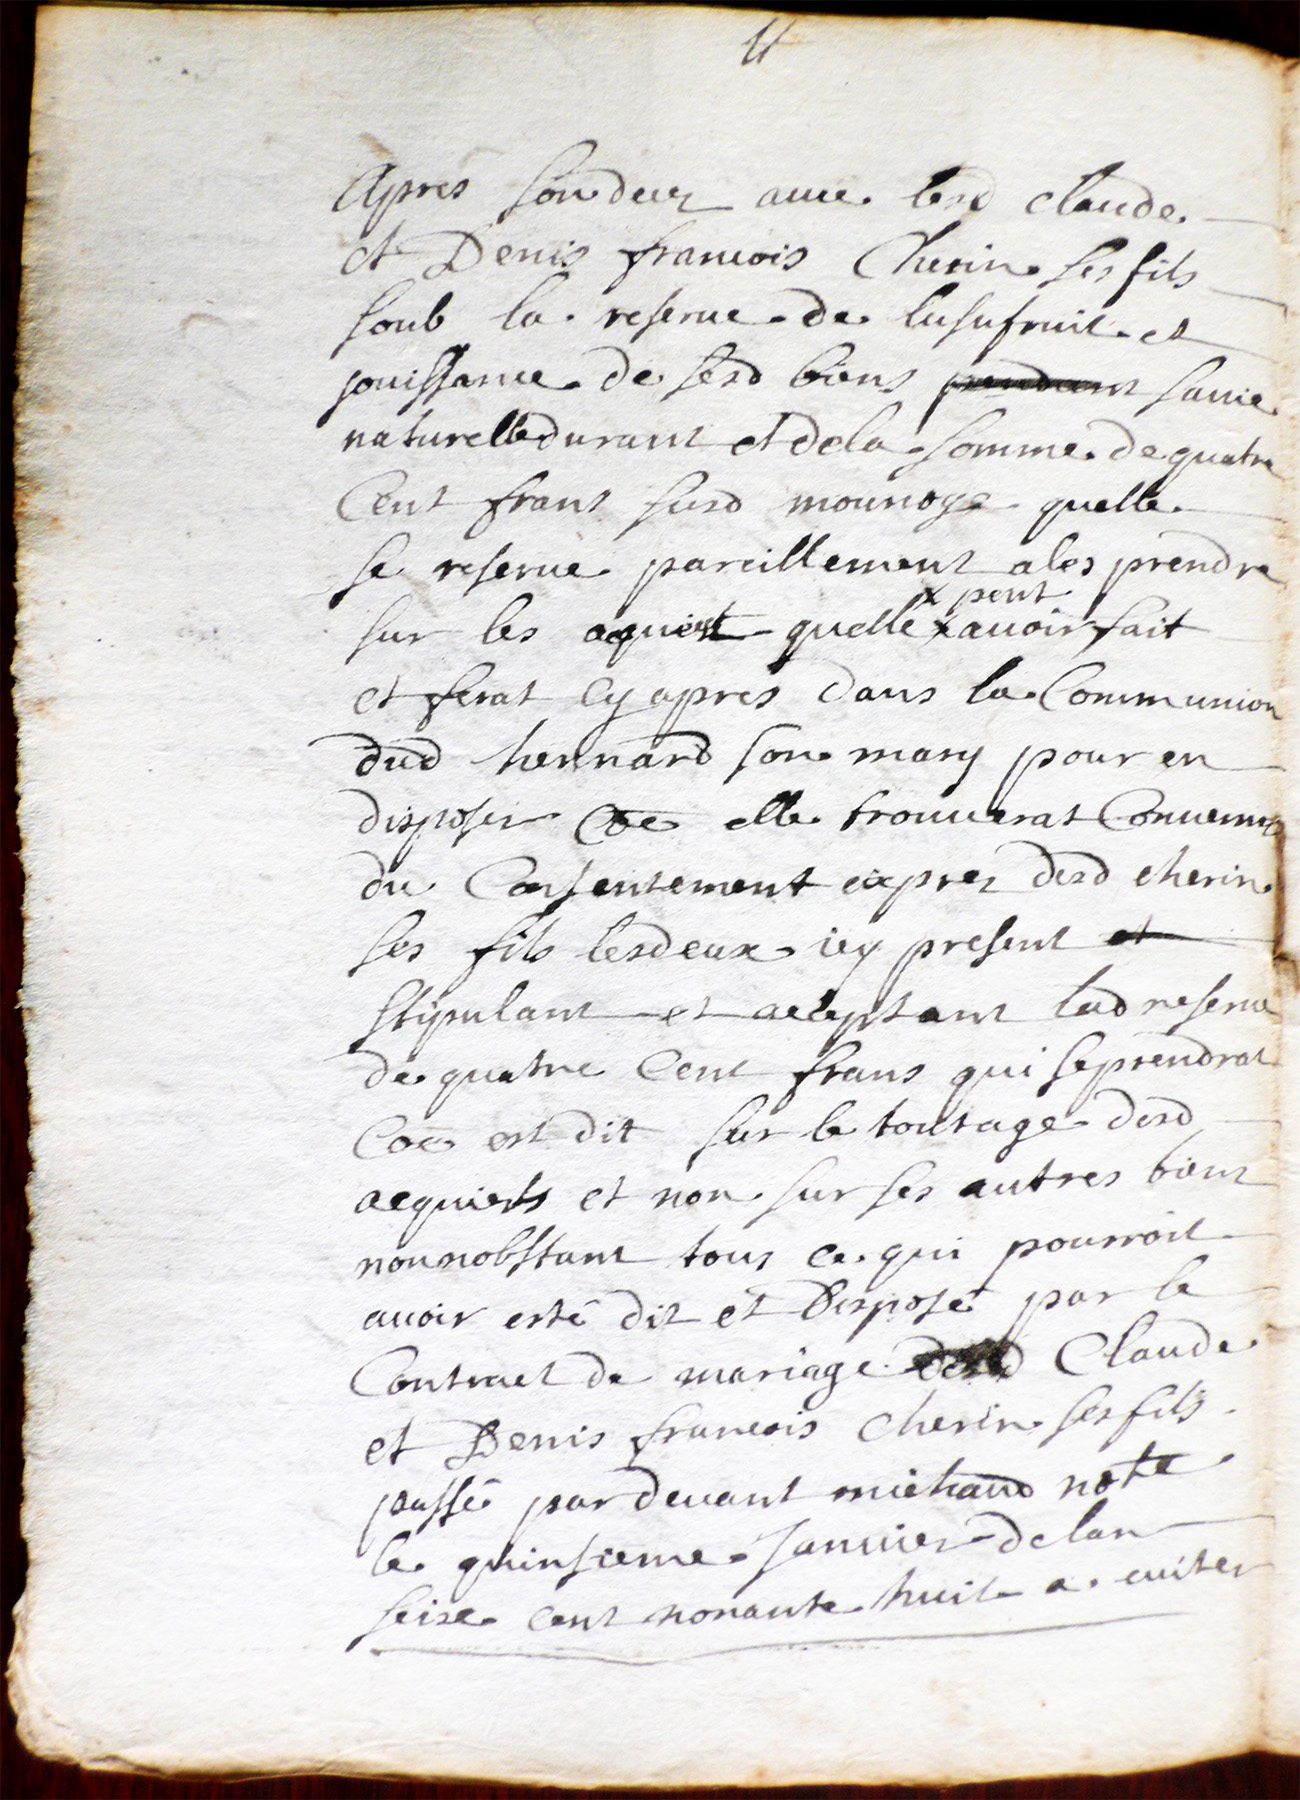 Apres son decez avec lesd claude
et Denis francois Cherin ses fils
soub la reserve de lusufruit et
jouissance de sesd biens pendant sa vie
naturelle durant et de la somme de quatre
Cent frans susd monnoye quelle
se reserve pareillement a les prendre
x peut
sur les aquest quelle x avoir fait
et ferat cy apres dans la Communion
dud hennard son mary pour en
disposer Coe elle trouverat Convenir
du Consentement exprez desd cherin
ses fils lesdeux icy present et
stipulant et aceptant lad reserve
de quatre Cent frans qui se prendrat
Coe est dit sur le toutage desd
acquiets et non sur ses autres bient
nonnobstant tous ce qui pourroit
avoir esté dit et Disposé par le
Contract de mariage desd Claude
et Denis francois cherin ses fils
passé par devant michaud notre
le quinsieme Janvier de lan
seise cent nonante huit a eviter